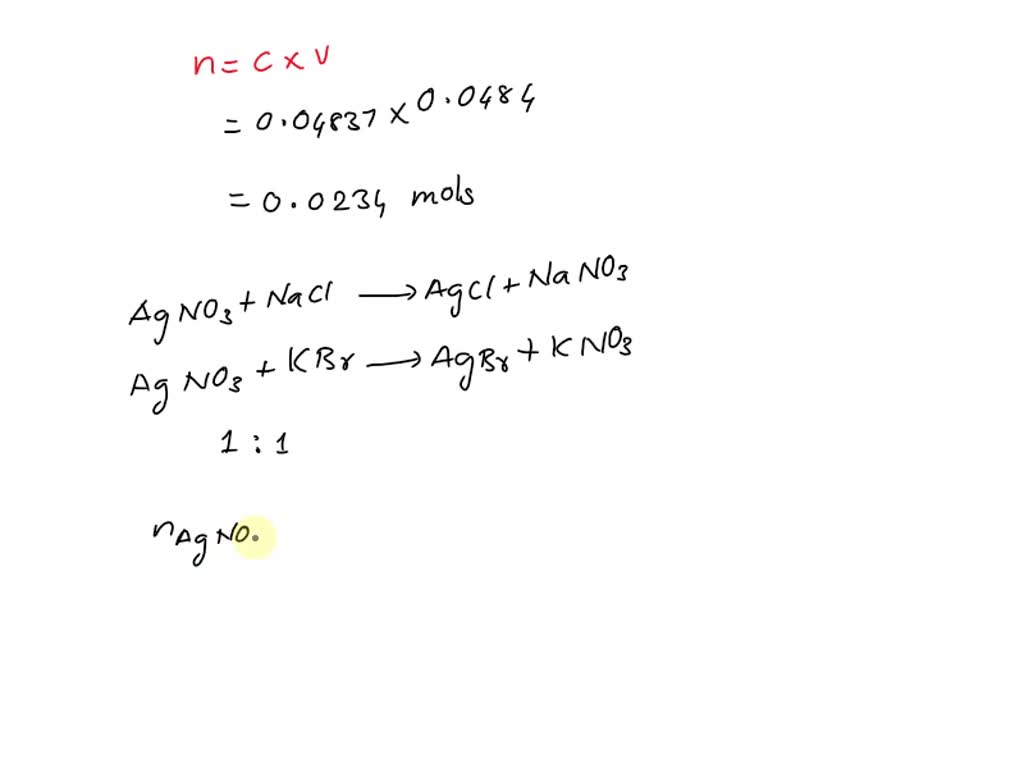 n = C × V
= 0.04837 × 0.0484
= 0.0234 mols
AgNO₃ + NaCl → AgCl + NaNO₃
AgNO₃ + KBr → AgBr + KNO₃
1 : 1
nAgNO.